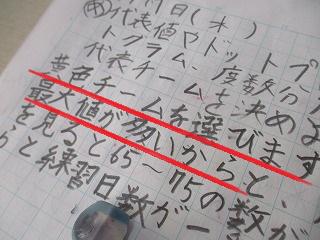 日(木)
め 代表値やドットプ
トグラム、度数分
代表チームを決めよ
黄色チームを選びます
最大値が多いからと、
を見ると65〜75の数が
らと練習日数が一